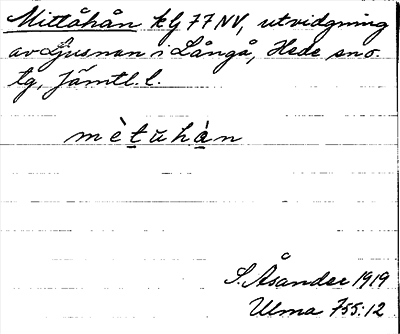 Mittåhån kG 77 NV, utvidgning
av Ljusnan i Långå, Hede sno.
tg, Jämtl. l.
mètuhàn
S. Åsander 1919
Ulma 755:12